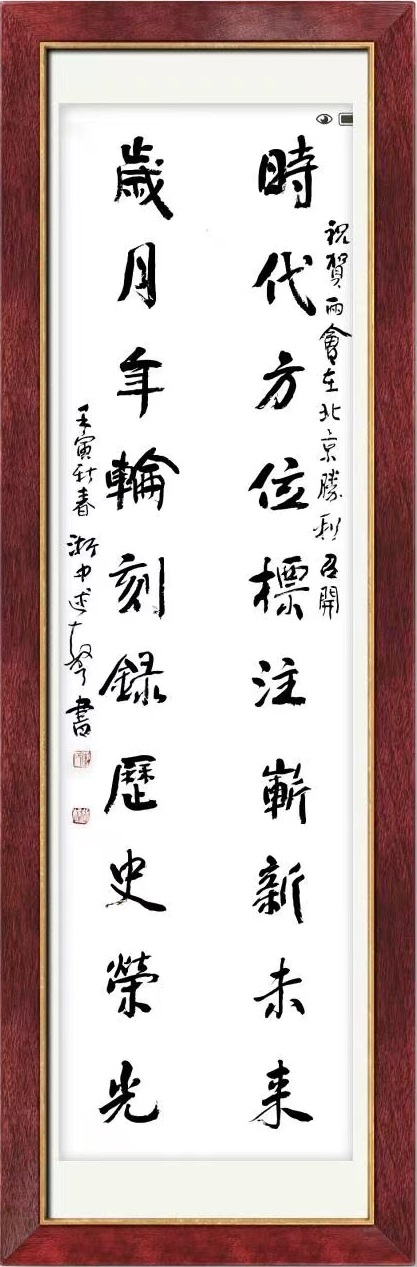 祝賀两會在北京勝利召開
時代方位標注嶄新未来
歲月年輪刻錄歷史榮光
壬寅新春
書